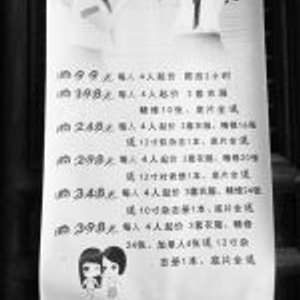 99元 每人 4人起价 跟拍2小时
398元 每人 4人起价 3套衣服
精修10张、底片全送
248元 每人 4人起价 3套衣服、精修16张
送12寸杂志册1本、底片全送
298元 每人 4人起价 3套衣服、精修20张
送12寸对裱册1本、底片全送
348元 每人 4人起价 3套衣服、精修24张
送10寸杂志册1本、底片全送
398元 每人 4人起价 3套衣服、精修
24张、加景人4张送12寸杂
志册1本、底片全送